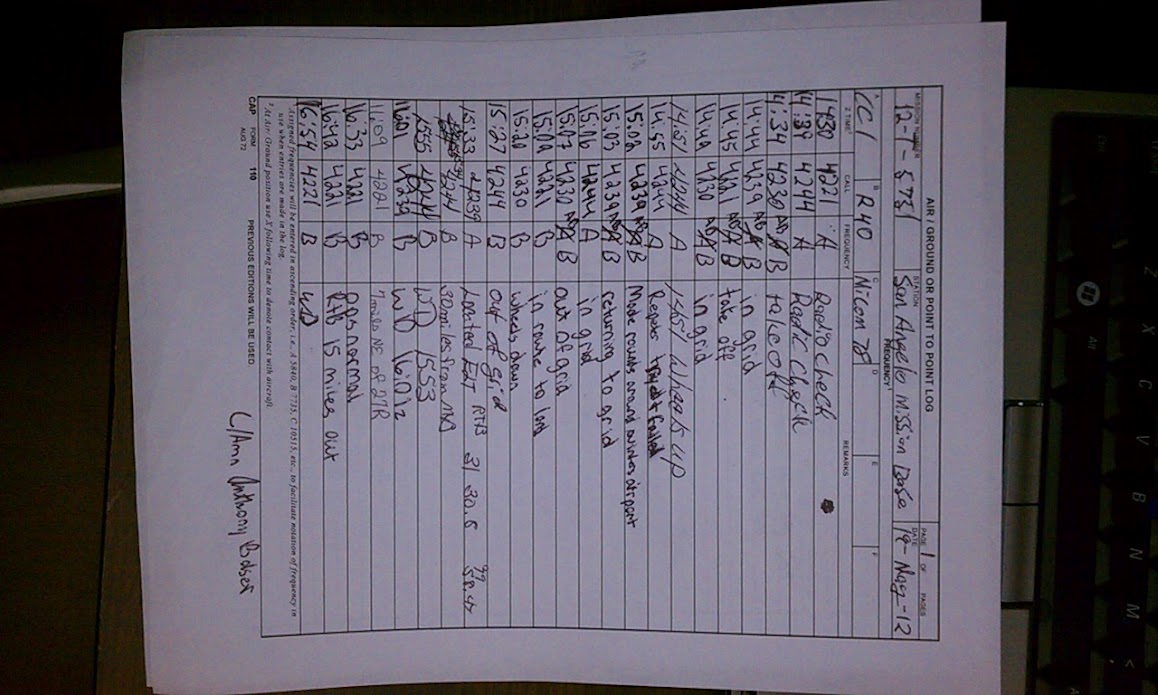 AIR / GROUND OR POINT TO POINT LOG
PAGE 1 OF PAGES
MISSION NUMBER STATION DATE
12-T-5751 San Angelo Mission Base 19-May-12
FREQUENCY¹
A CC1 B R40 C Nicom D E F
Z TIME² CALL FREQUENCY REMARKS
1430 4221 A Radio check
14:39 4214 A Radio Check
14:34 4239 B takeoff
14:44 4239 B in grid
14:45 4221 B take off
4230 B in grid
14:51 4244 A 1451 wheels up
14:55 4244 A
15:02 4239 B Made rounds around airport
15:03 4239 B returning to grid
15:06 4244 A in grid
15:07 4230 B out of grid
15:20 4221 B in route to land
15:20 4230 B wheels down
15:27 4214 B out of grid
15:33 4239 A Located ELT RTB 31 30.5 99
4214 B 30 miles from
1555 4244 B WD 1553
1601 4239 B WD 1601z
4221 B 7 miles NE of 27R
16:33 4221 B Ops normal
16:42 4221 B RTB 15 miles out
16:54 4221 B WD
¹ Assigned frequencies will be entered in ascending order, i.e., A 5840, B 7735, C 10515, etc., to facilitate notation of frequency in
use when entries are made in the log.
² At Air/Ground position use X following time to denote contact with aircraft.
CAP FORM AUG 72 110 PREVIOUS EDITIONS WILL BE USED.
C/Amn Anthony
Z X C V B N M <
Alt